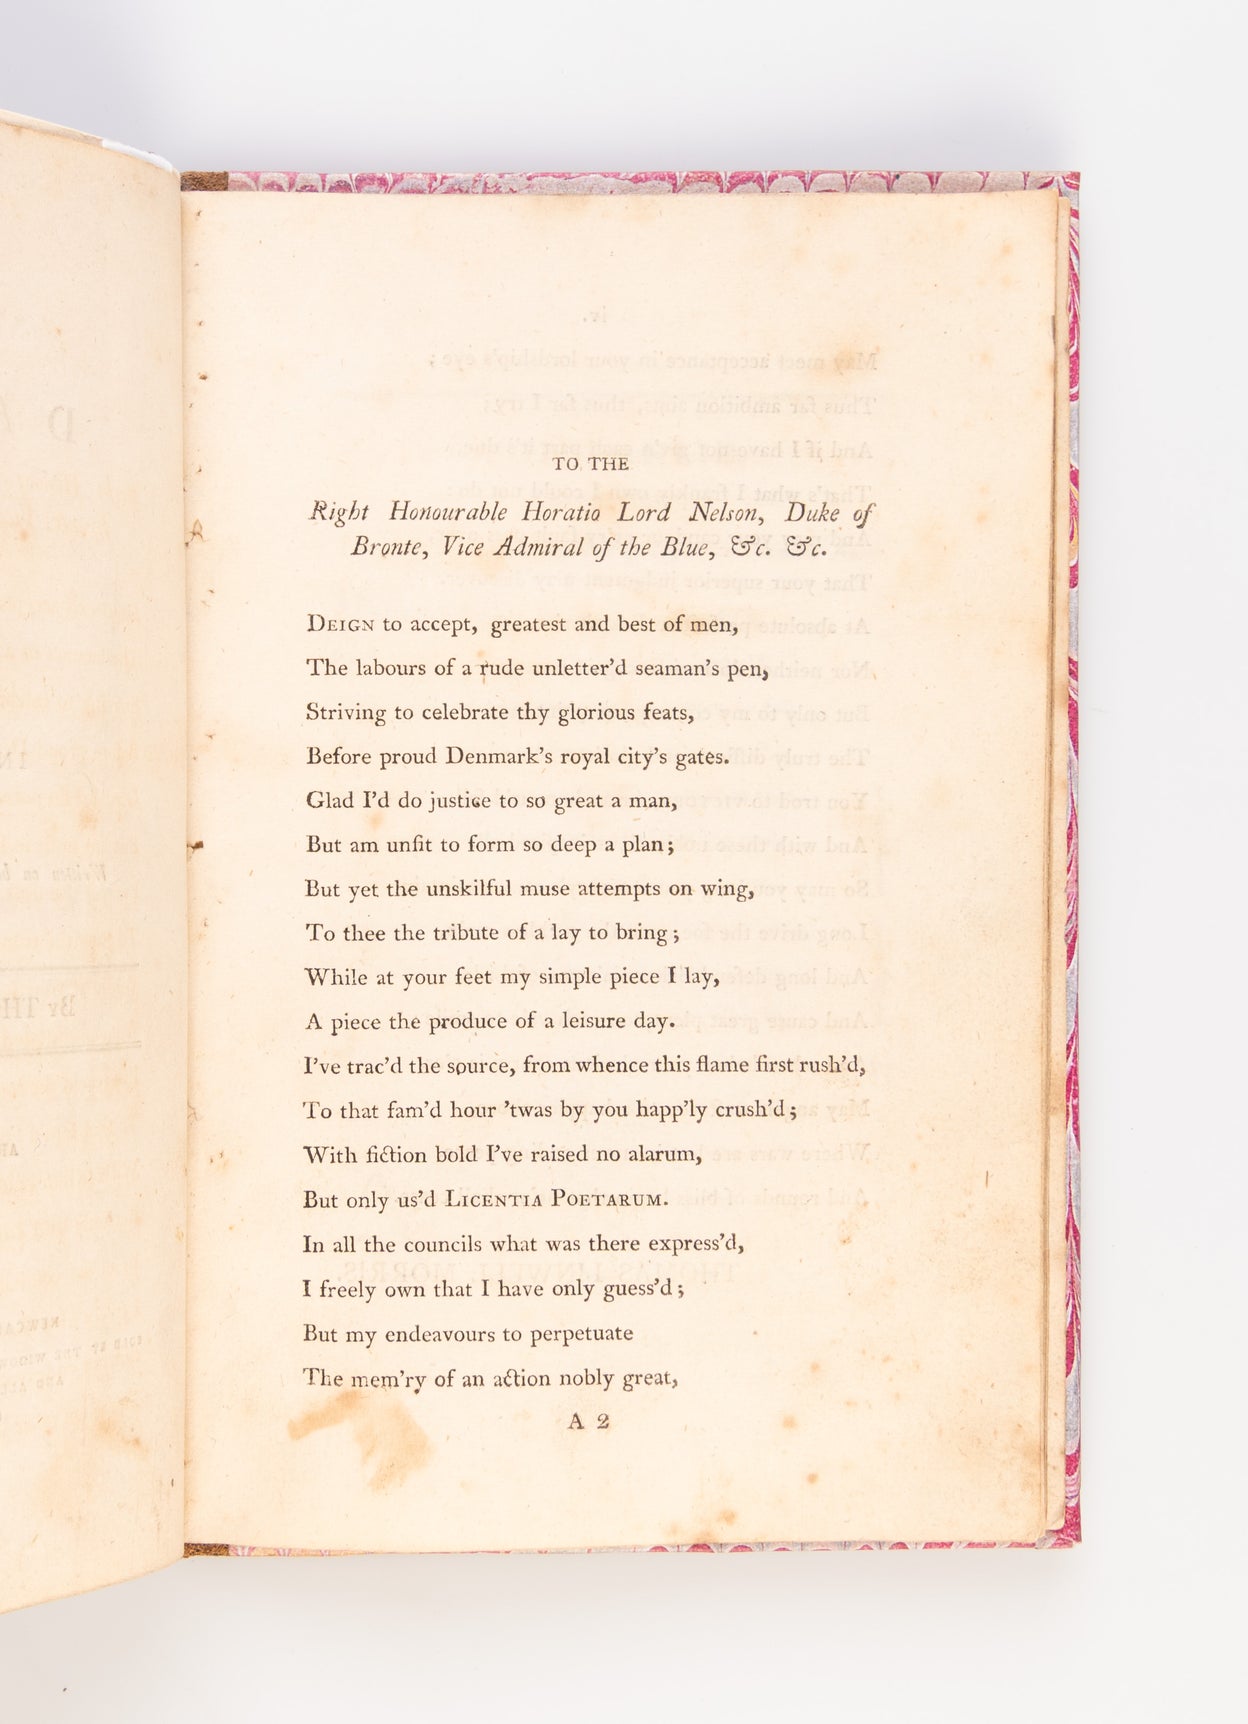 TO THE
Right Honourable Horatio Lord Nelson, Duke of
Bronte, Vice Admiral of the Blue, &c. &c.
DEIGN to accept, greatest and best of men,
The labours of a rude unletter'd seaman's pen,
Striving to celebrate thy glorious feats,
Before proud Denmark's royal city's gates.
Glad I'd do justice to so great a man,
But am unfit to form so deep a plan;
But yet the unskilful muse attempts on wing,
To thee the tribute of a lay to bring;
While at your feet my simple piece I lay,
A piece the produce of a leisure day.
I've trac'd the source, from whence this flame first rush'd,
To that fam'd hour 'twas by you happ'ly crush'd;
With fiction bold I've raised no alarum,
But only us'd LICENTIA POETARUM.
In all the councils what was there express'd,
I freely own that I have only guess'd;
But my endeavours to perpetuate
The mem'ry of an action nobly great,
A 2